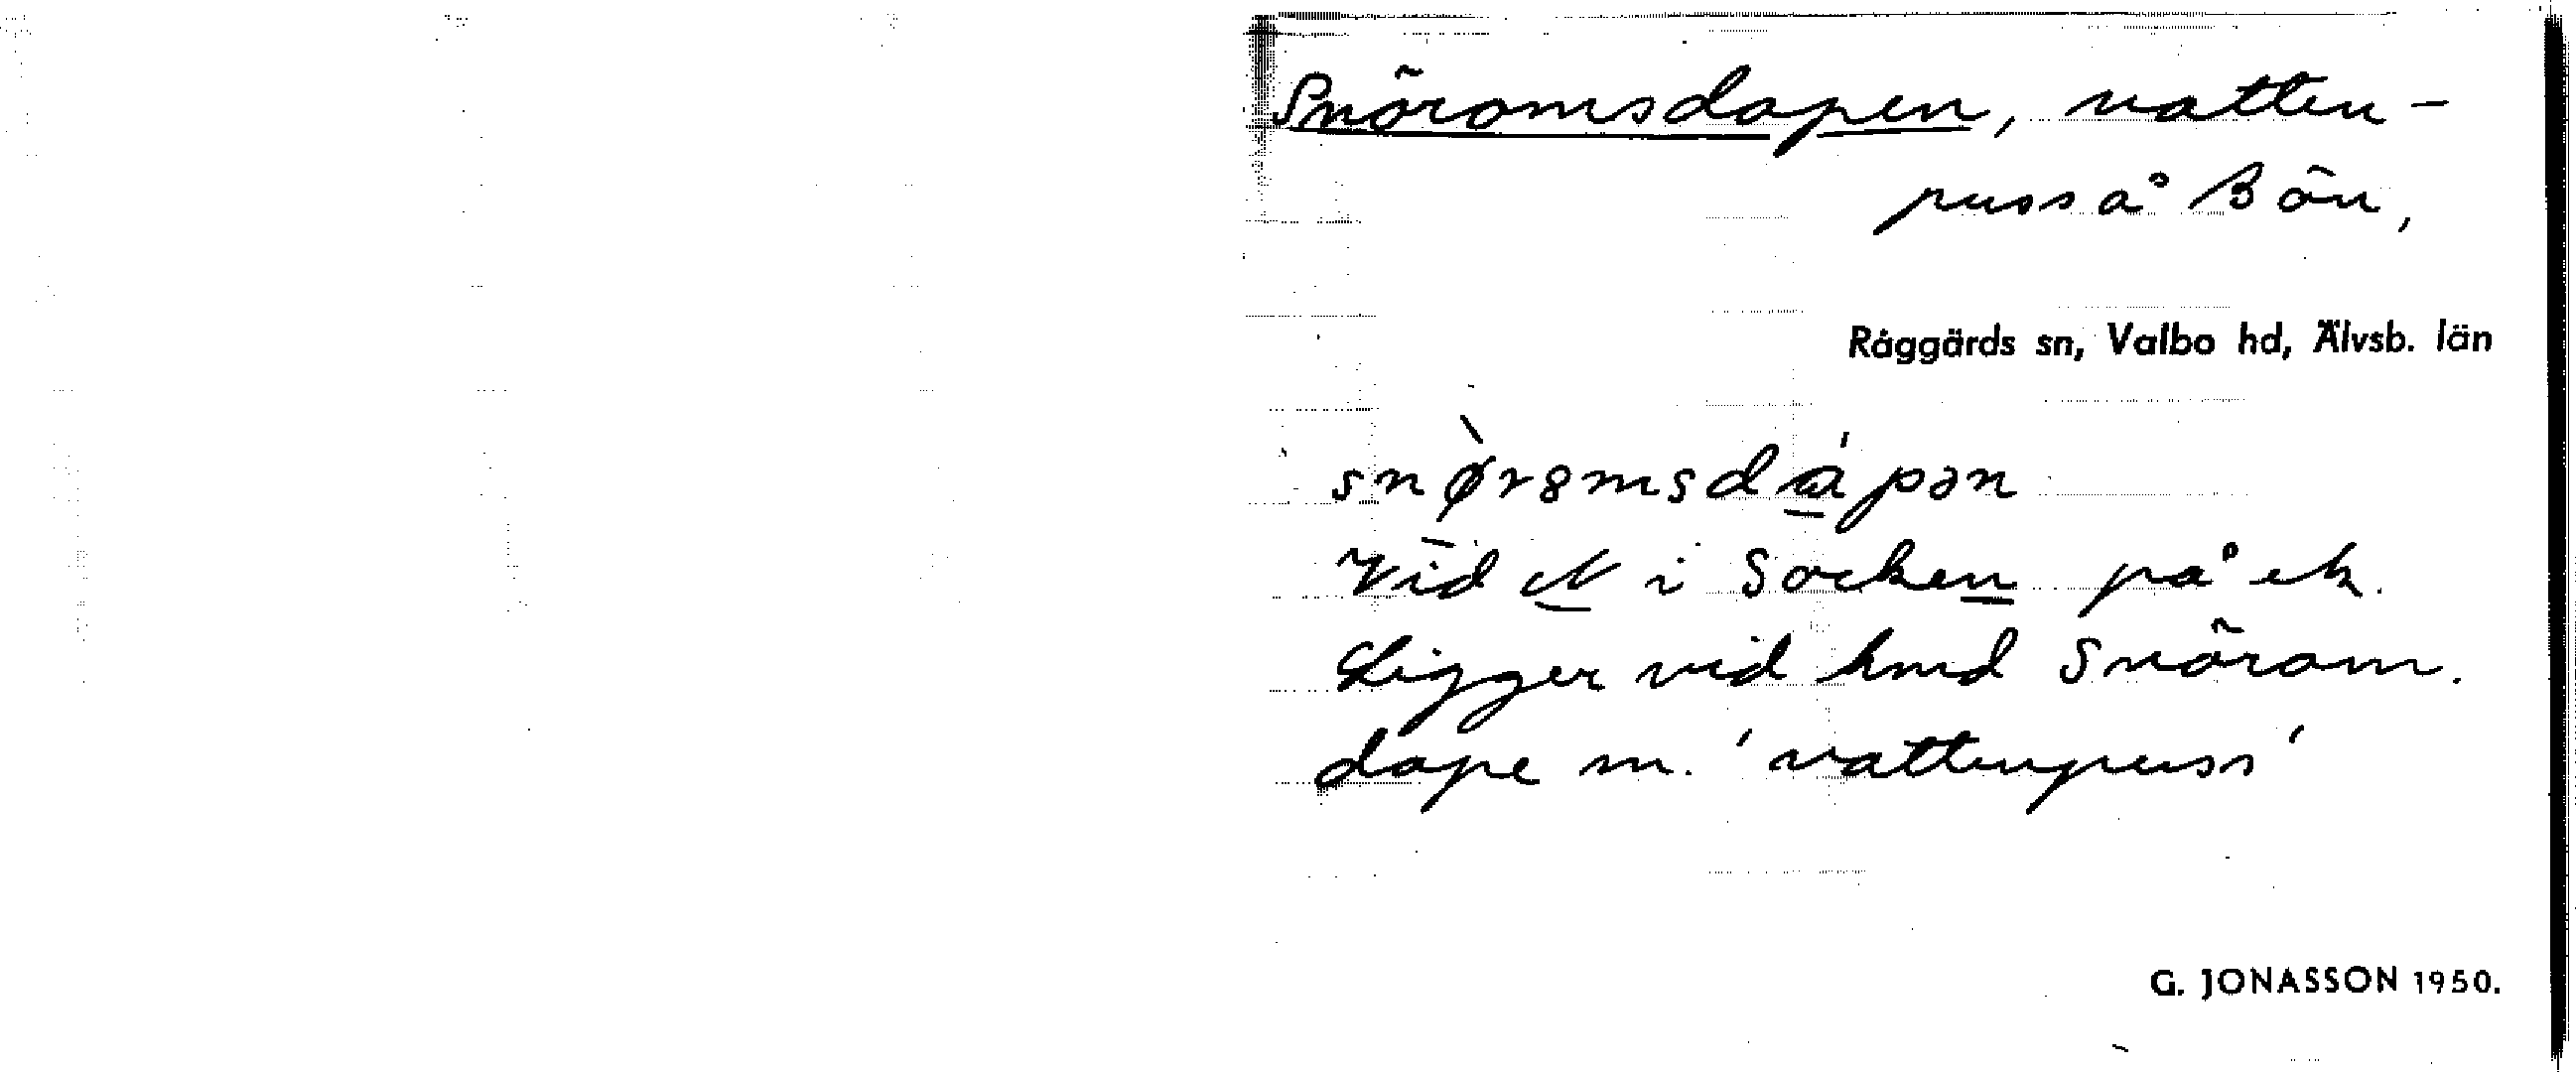 Snöromsdapen, vatten-
puss å Bön,
Råggärds sn, Valbo hd, Älvsb. län
snø̀r8msdа́pən
Vid N i Socken på ek.
Ligger vid hmd Snörom.
dape m. 'vattenpuss'
G. JONASSON 1950.